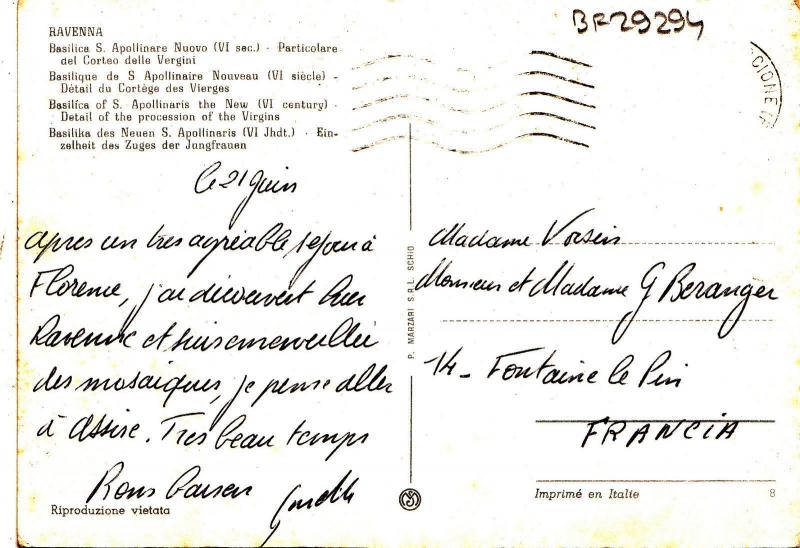 BR29294
RAVENNA
Basilica S. Apollinare Nuovo (VI sec.) - Particolare
del Corteo delle Vergini
Basilique de S Apollinaire Nouveau (VI siècle) -
Détail du Cortège des Vierges
Basilica of S. Apollinaris the New (VI century) -
Detail of the procession of the Virgins
Basilika des Neuen S. Apollinaris (VI Jhdt.) - Ein-
zelheit des Zuges der Jungfrauen
CIONE
Le 21 Juin
après un très agréable séjour à
Florence, j'ai découvert hier
Ravenne et suis emerveillée
des mosaiques, je pense aller
à Assise. Tres beau temps
Bons baisers
Riproduzione vietata
P. MARZARI S.R.L. SCHIO
Madame Voisin
Monsieur et Madame G Beranger
14 - Fontaine le Pin
FRANCIA
Imprimé en Italie 8